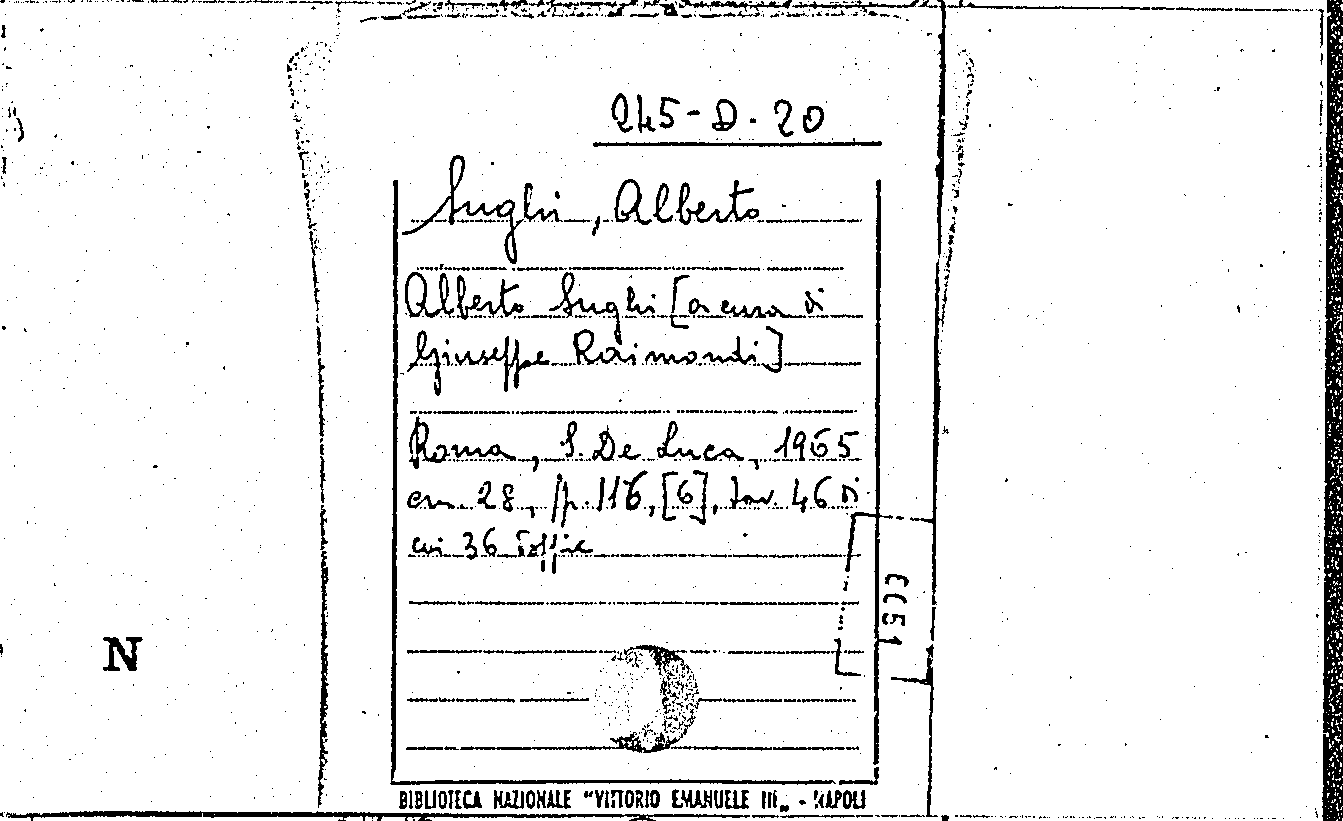 245-D-20
Sughi, Alberto
Alberto Sughi [a cura di
Giuseppe Raimondi]
Roma, S. De Luca, 1965
cm. 28, pp. 116, [6], tav. 46 di
cui 36
N
BIBLIOTECA NAZIONALE "VITTORIO EMANUELE III„ - NAPOLI